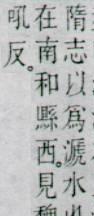 隋志以爲㴲水
在南和縣西。見
吼反。